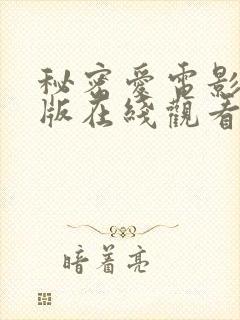 秘密愛電影
版在綫觀看
暗着亮